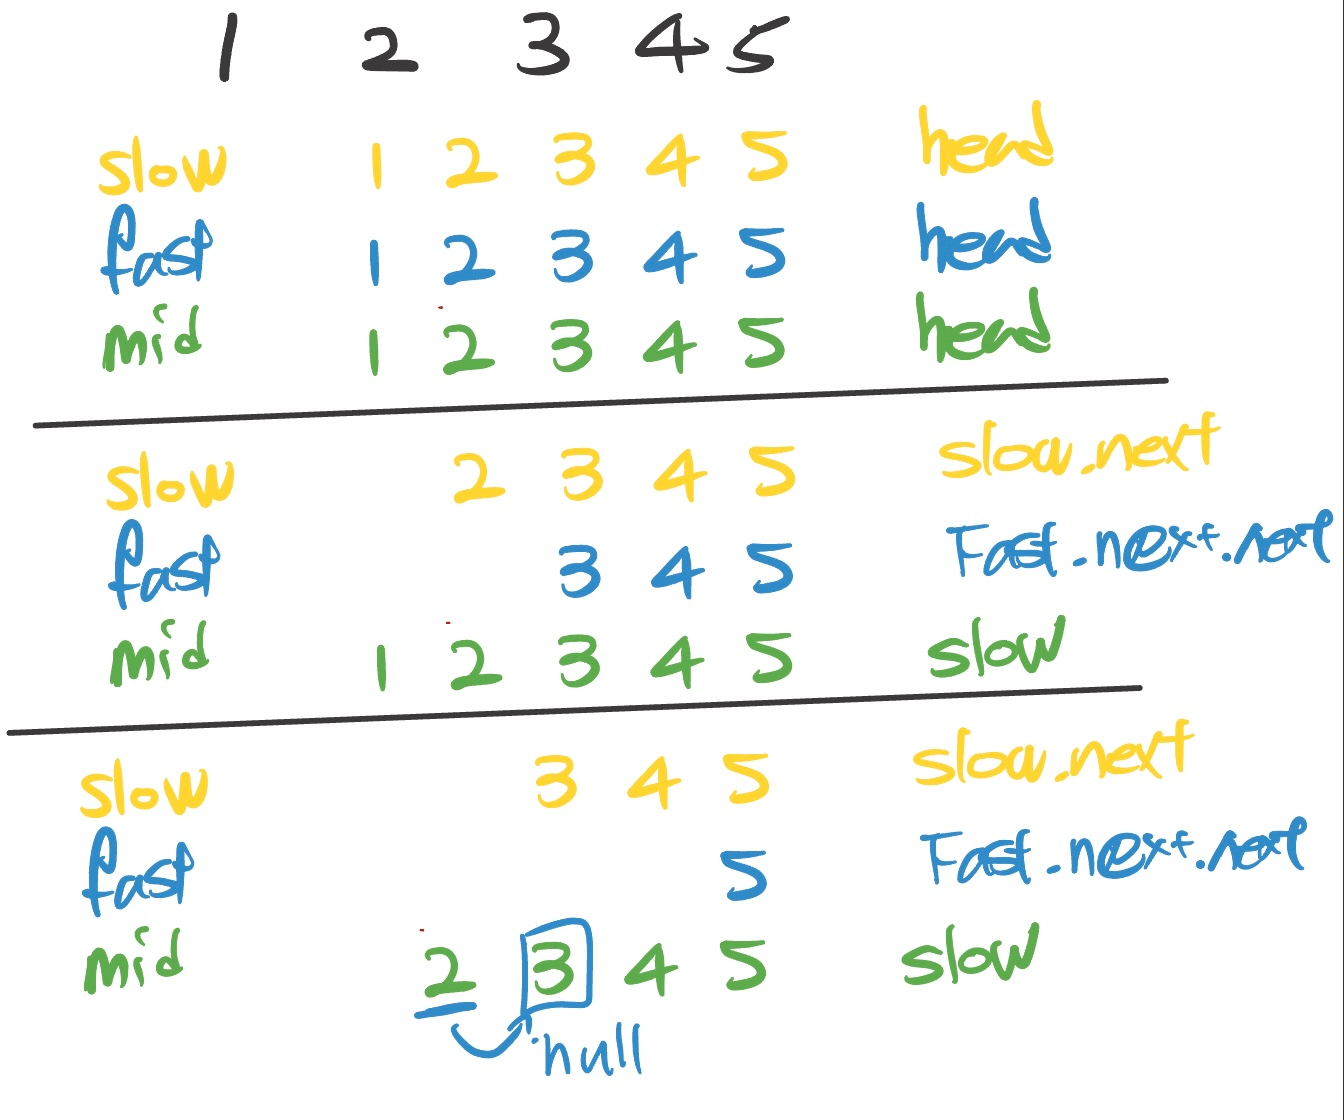 1 2 3 4 5
slow 1 2 3 4 5 head
fast 1 2 3 4 5 head
mid 1 2 3 4 5 head
slow 2 3 4 5 slow.next
fast 3 4 5 Fast.next.next
mid 1 2 3 4 5 slow
slow 3 4 5 slow.next
fast 5 Fast.next.next
mid 2 3 4 5 slow
null